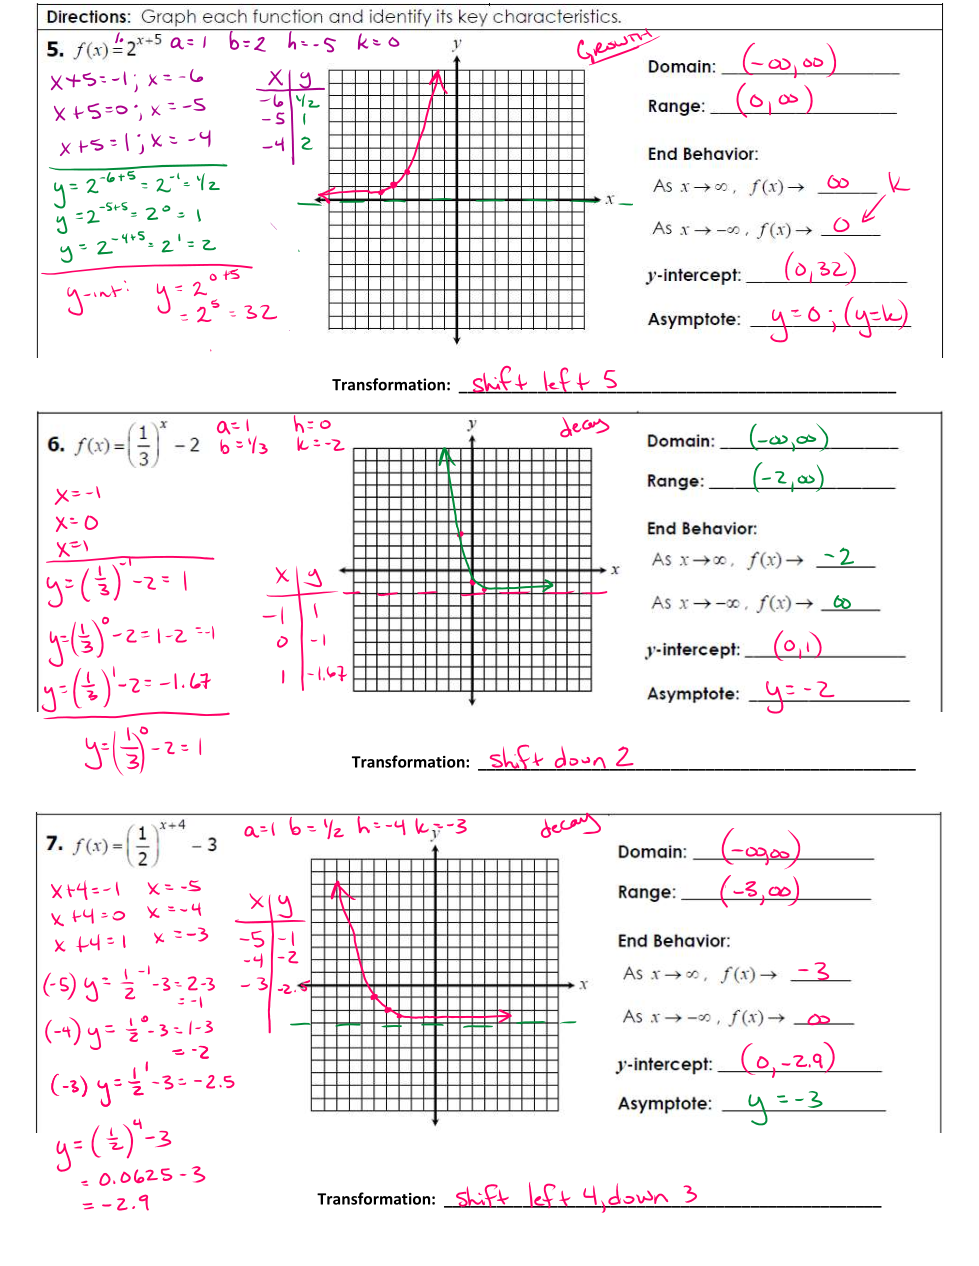 Directions: Graph each function and identify its key characteristics.
5. f(x) = 1·2^(x+5) a=1 b=2 h=-5 k=0
Growth
x+5=-1; x=-6
x+5=0; x=-5
x+5=1; x=-4
y=2^(-6+5)=2^(-1)=1/2
y=2^(-5+5)=2^0=1
y=2^(-4+5)=2^1=2
y-int: y=2^(0+5)
=2^5=32
x | y
-6 | 1/2
-5 | 1
-4 | 2
y
x
Domain: (-∞,∞)
Range: (0,∞)
End Behavior:
As x→∞, f(x)→ ∞ k
As x→-∞, f(x)→ 0
y-intercept: (0,32)
Asymptote: y=0; (y=k)
Transformation: shift left 5
6. f(x)=(1/3)^x - 2
a=1 h=0
b=1/3 k=-2
decay
x=-1
x=0
x=1
y=(1/3)^(-1)-2=1
y=(1/3)^0-2=1-2=-1
y=(1/3)^1-2=-1.67
y=(1/3)^0-2=1
x | y
-1 | 1
0 | -1
1 | -1.67
y
x
Domain: (-∞,∞)
Range: (-2,∞)
End Behavior:
As x→∞, f(x)→ -2
As x→-∞, f(x)→ ∞
y-intercept: (0,1)
Asymptote: y=-2
Transformation: shift down 2
7. f(x)=(1/2)^(x+4) - 3 a=1 b=1/2 h=-4 k=-3
decay
x+4=-1 x=-5
x+4=0 x=-4
x+4=1 x=-3
(-5) y=1/2^(-1)-3=2-3
=-1
(-4) y=1/2^0-3=1-3
=-2
(-3) y=1/2^1-3=-2.5
y=(1/2)^4-3
=0.0625-3
=-2.9
x | y
-5 | -1
-4 | -2
-3 | -2.5
y
x
Domain: (-∞,∞)
Range: (-3,∞)
End Behavior:
As x→∞, f(x)→ -3
As x→-∞, f(x)→ ∞
y-intercept: (0,-2.9)
Asymptote: y=-3
Transformation: shift left 4, down 3